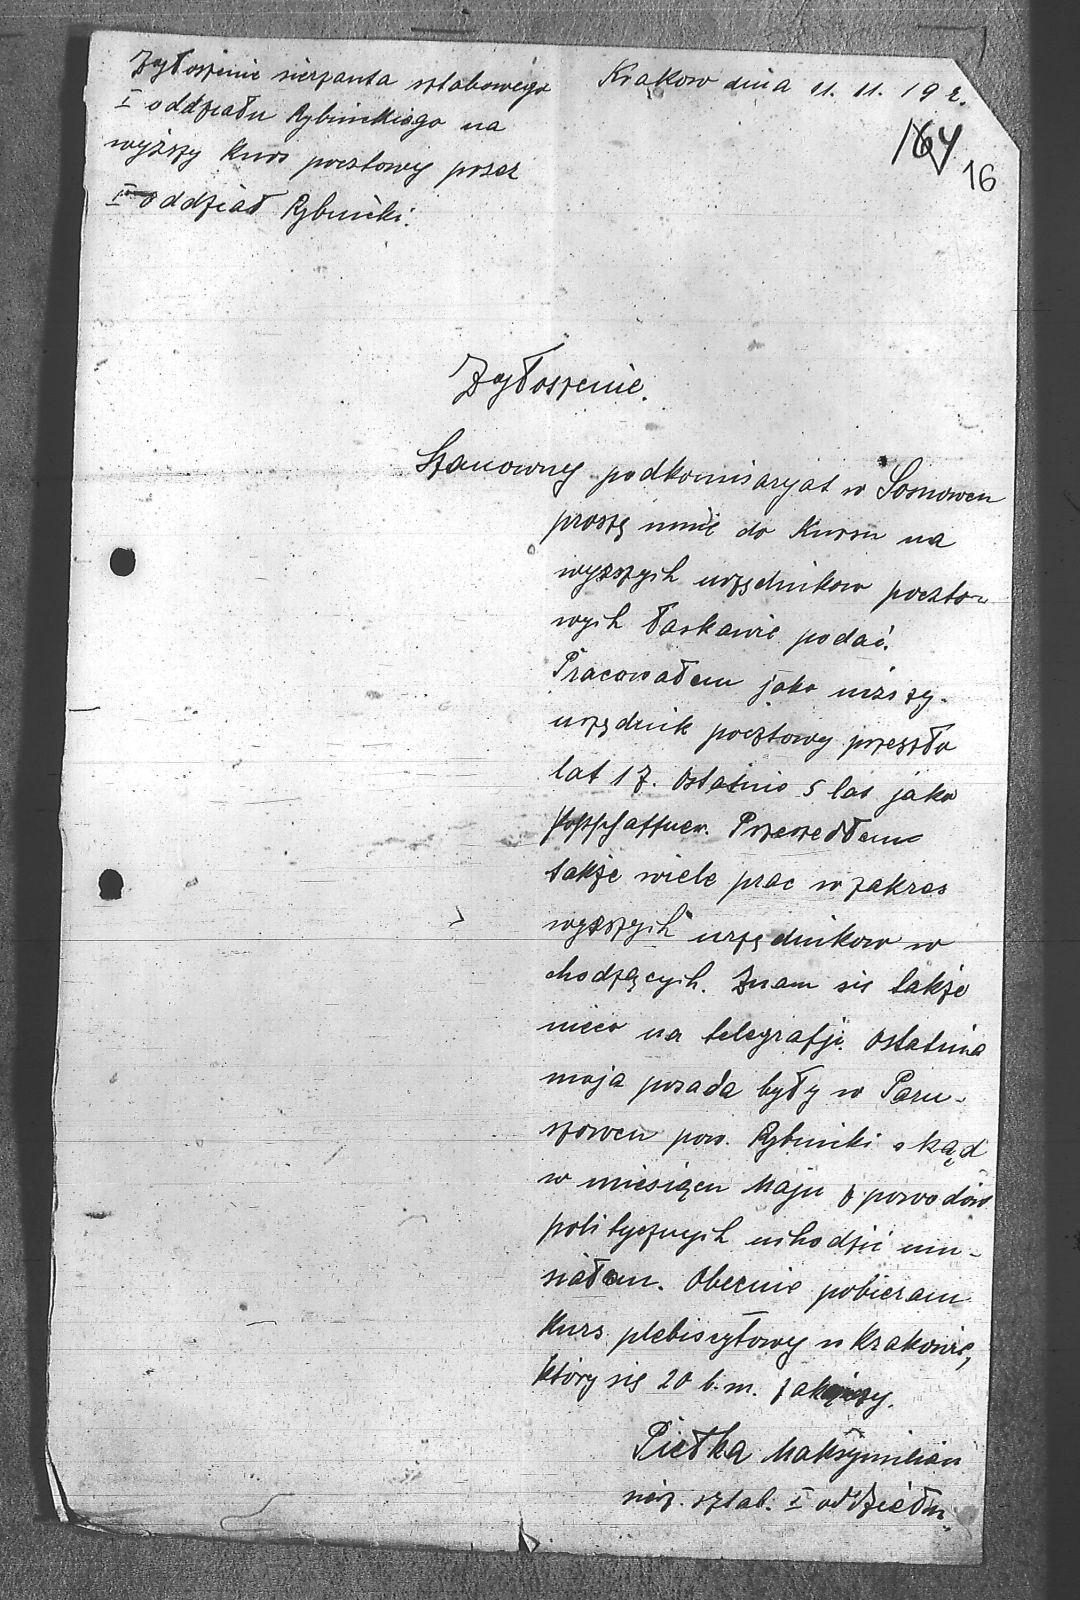 Zgłoszenie sierzanta sztabowego
I oddziału Rybnickiego na
wyższy kurs pocztowy przez
I oddział Rybnicki.
Krakow dnia 11. 11. 19
164
16
Zgłoszenie.
Szanowny podkomisaryat w Sosnowcu
proszę mnie do Kursu na
wyższych urzędnikow poczto-
wych łaskawie podać.
Pracowałem jako niższy
urzędnik pocztowy przeszło
lat 17. Ostatnio 5 lat jako
Postschaffner. Przeszedłem
także wiele prac w zakres
wyższych urzędnikow w
chodzących. Znam sie także
nieco na telegrafji. Ostatnia
moja posada były w Paru-
szowcu pow. Rybnicki skąd
w miesiącu Maju z powodów
politycznych uchodzić mu-
siałem. Obecnie pobieram
Kurs plebiscytowy w Krakowie,
który się 20 b.m. zakończy.
Pietka Maksymilian
sierż. sztab. I oddziełu.